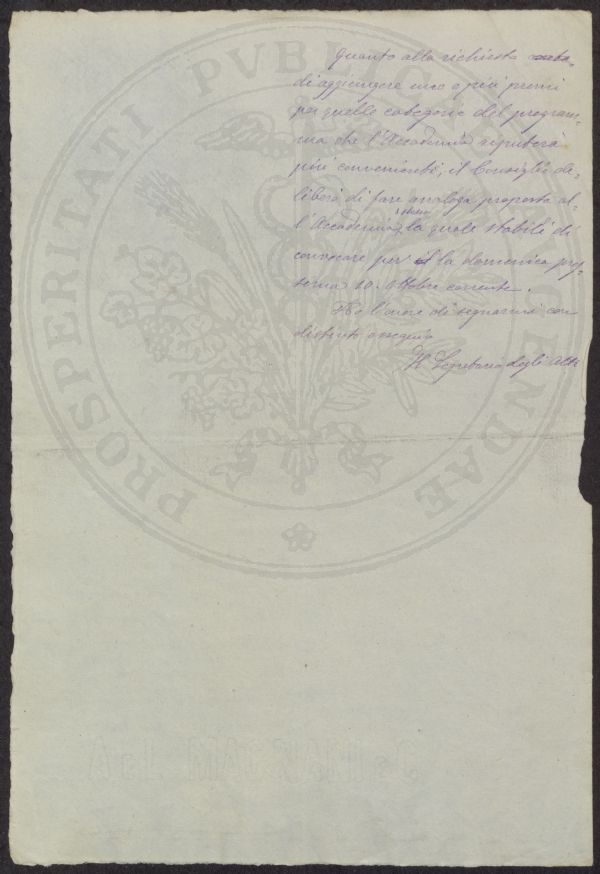 Quanto alla richiesta
di aggiungere uno o più premi
per quelle categorie del program-
ma che l'Accademia reputerà
più convenienti, il Consiglio de-
liberò di fare analoga proposta al-
l'Accademia stessa, la quale stabilì di
convocare per la domenica pros-
sima 10. Ottobre corrente.
Ho l'onore di segnarmi con
distinto ossequio
Il Segretario degli Atti
PROSPERITATI PVBLICAE AVGENDAE
A e L MAGNANI e C